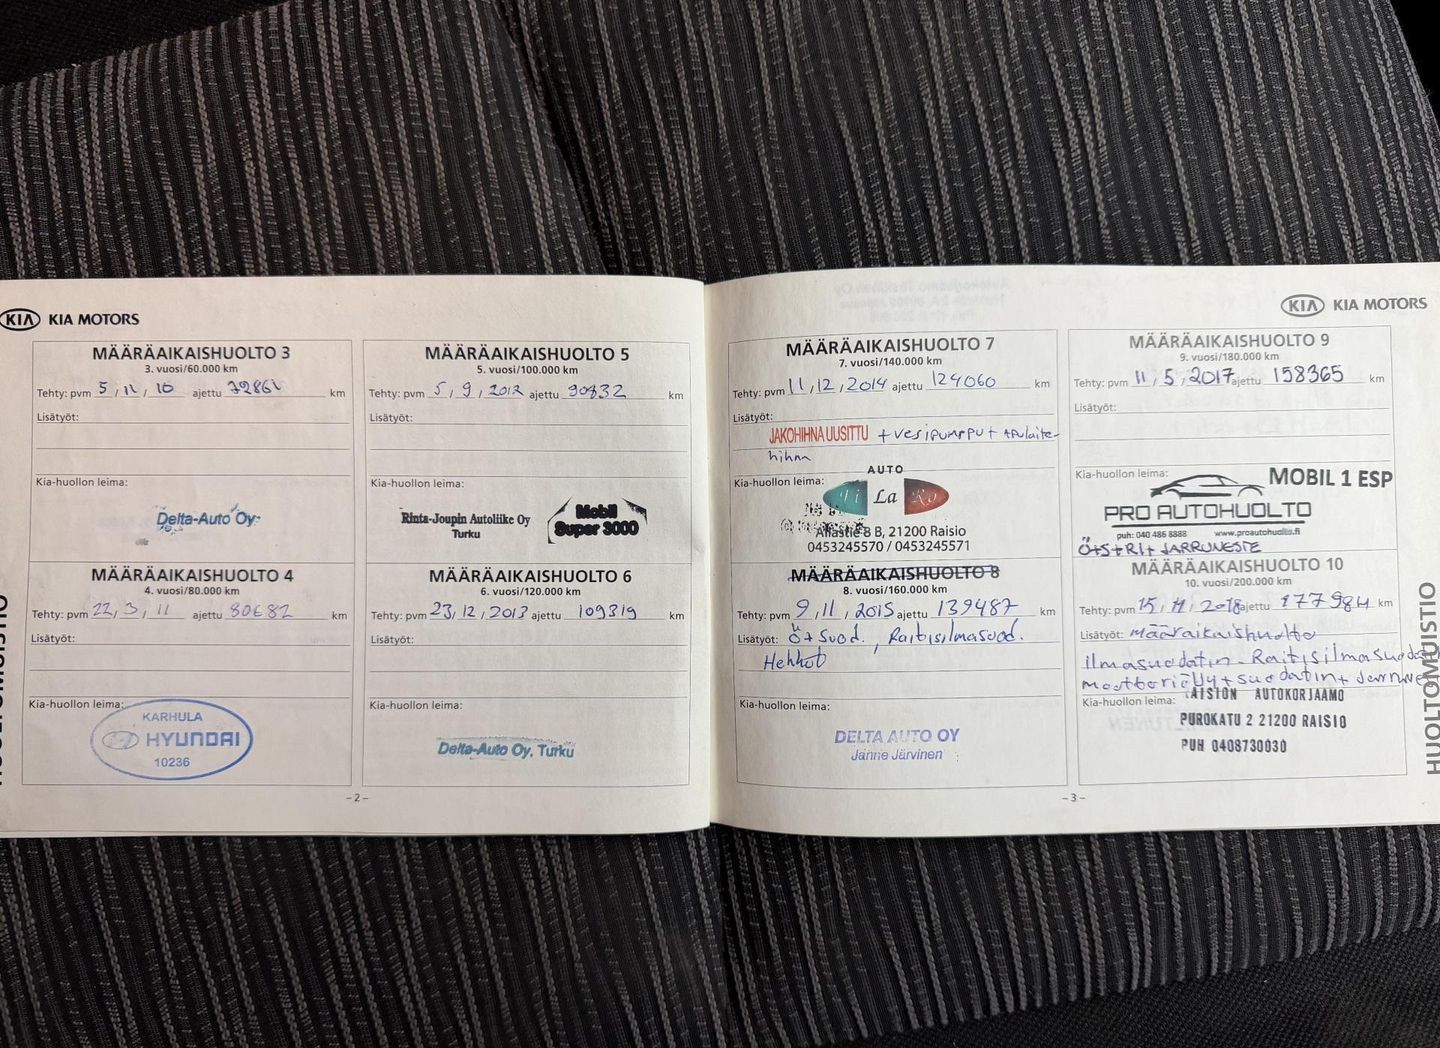 KIA KIA MOTORS
MÄÄRÄAIKAISHUOLTO 3
3. vuosi/60.000 km
Tehty: pvm 5, 11, 10 ajettu km
Lisätyöt:
Kia-huollon leima:
Delta-Auto Oy
MÄÄRÄAIKAISHUOLTO 4
4. vuosi/80.000 km
Tehty: pvm 22, 3, 11 ajettu 80682 km
Lisätyöt:
Kia-huollon leima:
KARHULA
HYUNDAI
10236
MÄÄRÄAIKAISHUOLTO 5
5. vuosi/100.000 km
Tehty: pvm 5, 9, 2012 ajettu 90832 km
Lisätyöt:
Kia-huollon leima:
Rinta-Joupin Autoliike Oy
Turku
Mobil
Super 3000
MÄÄRÄAIKAISHUOLTO 6
6. vuosi/120.000 km
Tehty: pvm 23, 12, 2013 ajettu 109319 km
Lisätyöt:
Kia-huollon leima:
Delta-Auto Oy, Turku
-2-
HUOLTOMUISTIO
KIA KIA MOTORS
MÄÄRÄAIKAISHUOLTO 7
7. vuosi/140.000 km
Tehty: pvm 11, 12, 2014 ajettu 124060 km
Lisätyöt:
JAKOHIHNA UUSITTU + vesipumppu + apulaite-
hihna
Kia-huollon leima:
AUTO
La Ro
Allastie 8 B, 21200 Raisio
0453245570 / 0453245571
MÄÄRÄAIKAISHUOLTO 8
8. vuosi/160.000 km
Tehty: pvm 9, 11, 2015 ajettu 139487 km
Lisätyöt: Ö + Suod., Raitisilmasuod.
Hehkut
Kia-huollon leima:
DELTA AUTO OY
Janne Järvinen
MÄÄRÄAIKAISHUOLTO 9
9. vuosi/180.000 km
Tehty: pvm 11, 5, 2017 ajettu 158365 km
Lisätyöt:
Kia-huollon leima:
MOBIL 1 ESP
PRO AUTOHUOLTO
puh: 040 486 8888 www.proautohuolto.fi
Ö+S+RI+ JARRUNESTE
MÄÄRÄAIKAISHUOLTO 10
10. vuosi/200.000 km
Tehty: pvm 15, 11, 2018 ajettu 177984 km
Lisätyöt: määräikaishuolto
Ilmasuodatin. Raitisilmasuodatin
moottoriöljy + suodatin + Jarruneste
Kia-huollon leima:
AISION AUTOKORJAAMO
PUROKATU 2 21200 RAISIO
PUH 0408730030
-3-
HUOLTOMUISTIO